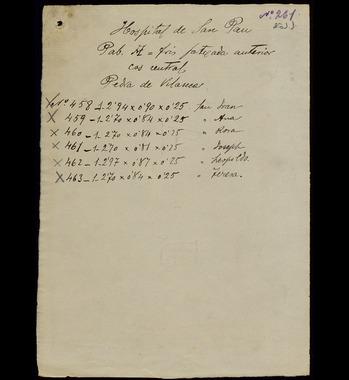 Nº 261
Hospital de San Pau
Pab. A = fris fatxada anterior
cos central
Pedra de Vilanova
X Nº 458 - 1- 2'94 x 0'90 x 0'25 San Ivan
X 459 - 1- 2'70 x 0'84 x 0'25 " Ana
X 460 - 1- 2'70 x 0'84 x 0'25 " Rosa
X 461 - 1- 2'70 x 0'81 x 0'25 " Joseph
X 462 - 1- 2'97 x 0'87 x 0'25 " Leopoldo
X 463 - 1- 2'70 x 0'84 x 0'25 " Teresa